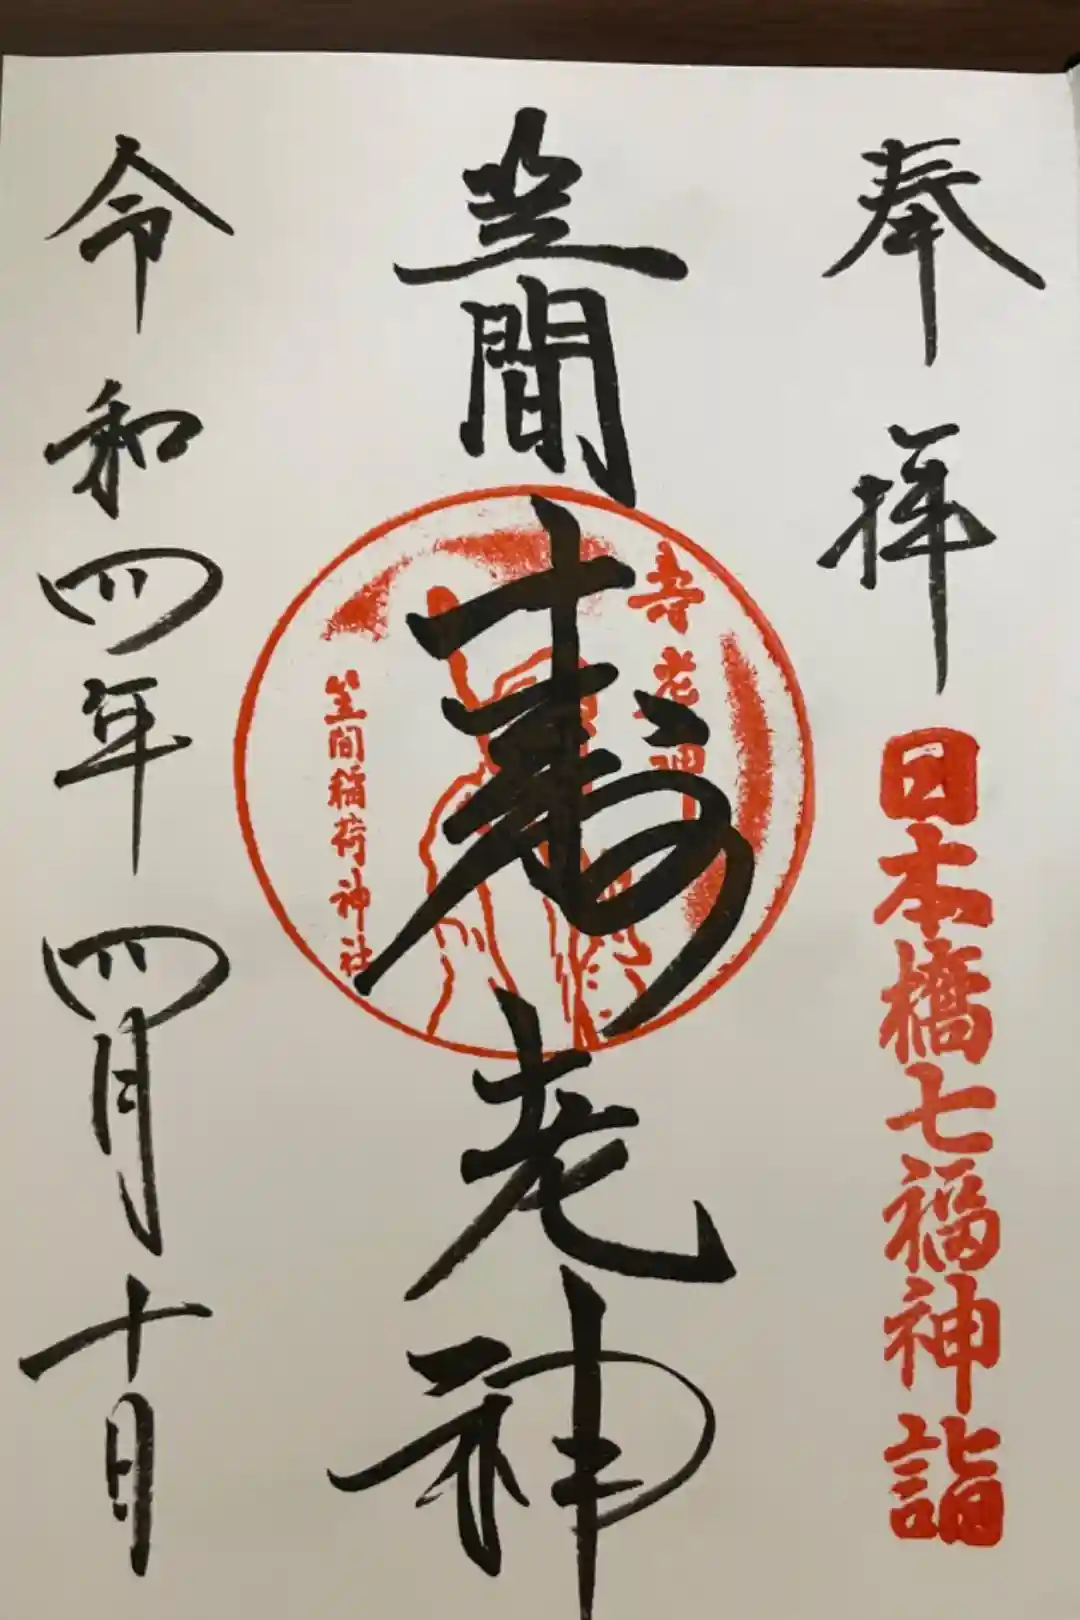 奉拝
日本橋七福神詣
笠間
寿老神
寿老神
笠間稲荷神社
令和四年四月十日